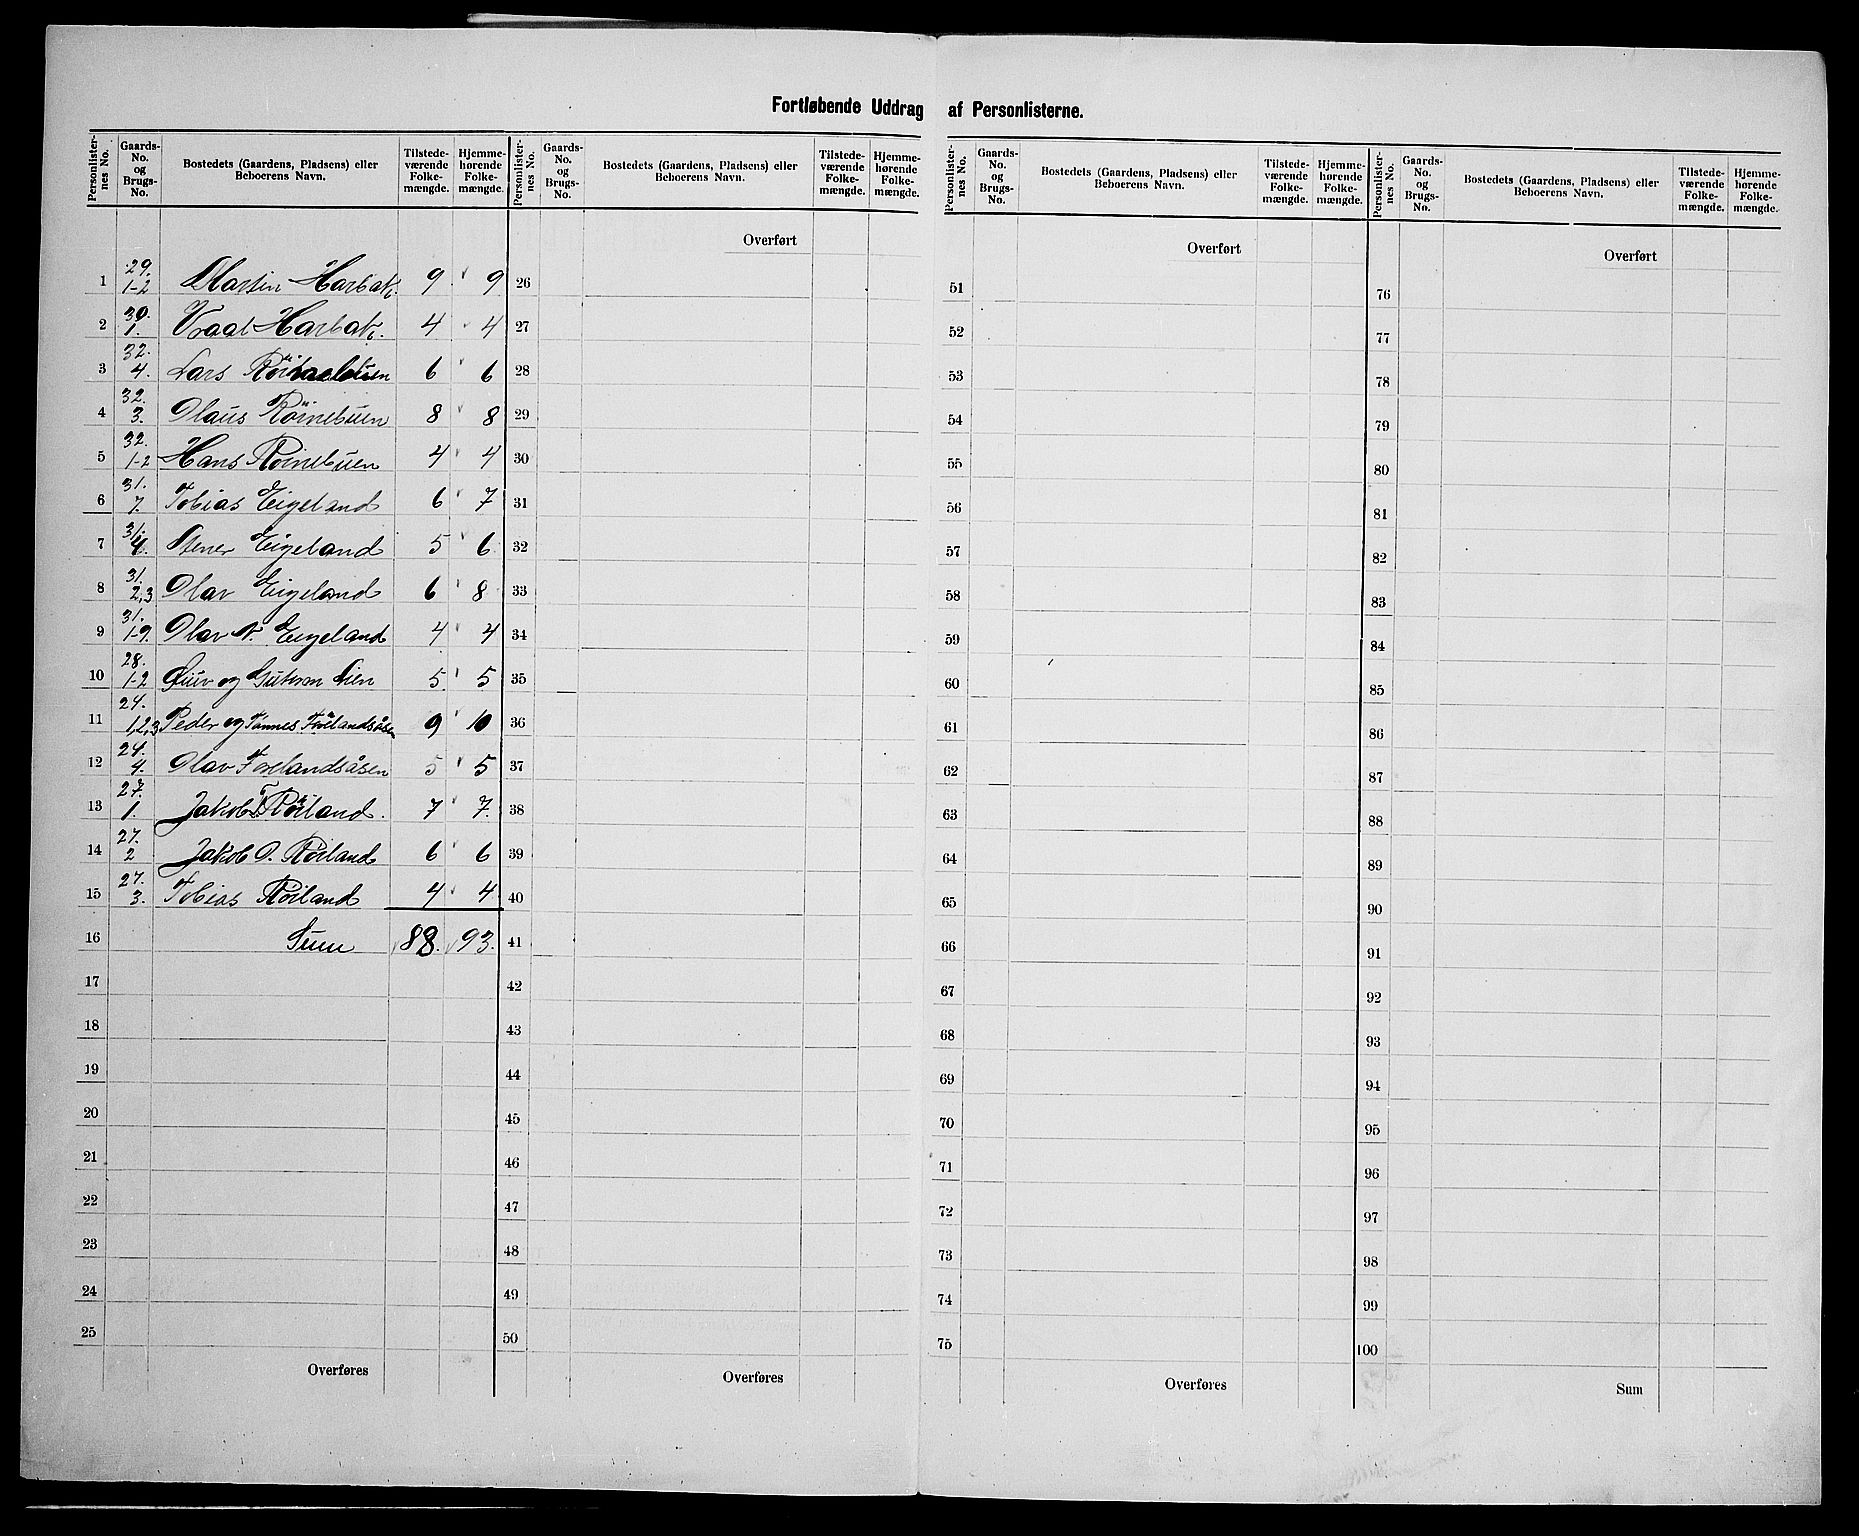 Fortløbende Uddrag af Personlisterne.
Personlister-nes No. | Gaards-No. og Brugs-No. | Bostedets (Gaardens, Pladsens) eller Beboerens Navn. | Tilstede-værende Folke-mængde. | Hjemme-hørende Folke-mængde.
Personlister-nes No. | Gaards-No. og Brugs-No. | Bostedets (Gaardens, Pladsens) eller Beboerens Navn. | Tilstede-værende Folke-mængde. | Hjemme-hørende Folke-mængde.
Personlister-nes No. | Gaards-No. og Brugs-No. | Bostedets (Gaardens, Pladsens) eller Beboerens Navn. | Tilstede-værende Folke-mængde. | Hjemme-hørende Folke-mængde.
Personlister-nes No. | Gaards-No. og Brugs-No. | Bostedets (Gaardens, Pladsens) eller Beboerens Navn. | Tilstede-værende Folke-mængde. | Hjemme-hørende Folke-mængde.
Overført Overført Overført
1 29. 1-2 Martin Harbak. 9 9 26 51 76
2 30. 1. Vraal Harbak. 4 4 27 52 77
3 32. 4. Lars 6 6 28 53 78
4 32. 3. Olaus Röinebuen 8 8 29 54 79
5 32. 1-2 Hans Röinebuen 4 4 30 55 80
6 31. 7. Tobias Eigeland 6 7 31 56 81
7 31. 4. Stener Eigeland 5 6 32 57 82
8 31. 2,3 Olav Eigeland 6 8 33 58 83
9 31. 1-9. Olav N. Eigeland 4 4 34 59 84
10 28. 1-2 og Guttorm Lien 5 5 35 60 85
11 24. 1,2,3 Peder og Tönnes Förelandsåsen 9 10 36 61 86
12 24. 4. Olav Förelandsåsen 5 5 37 62 87
13 27. 1. Jakob T. Röiland. 7 7. 38 63 88
14 27. 2 Jakob O. Röiland 6 6 39 64 89
15 27. 3. Tobias Röiland 4 4 40 65 90
16 Sum 88. 93. 41 66 91
17 42 67 92
18 43 68 93
19 44 69 94
20 45 70 95
21 46 71 96
22 47 72 97
23 48 73 98
24 49 74 99
25 50 75 100
Overføres Overføres Overføres Sum